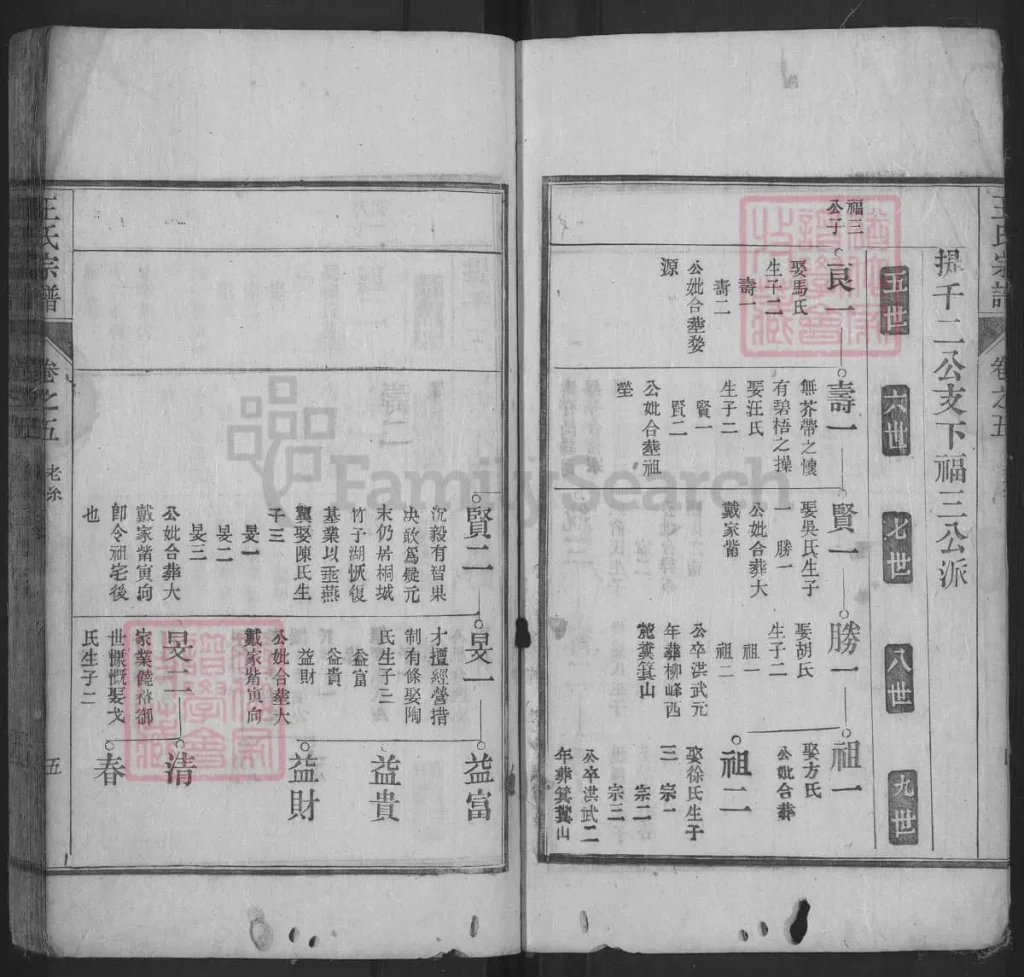 王氏宗譜
卷之五
提千二公支下福三公派
五世
六世
七世
八世
九世
福三
公子
良一
娶馬氏
生子二
壽一
壽二
公妣合塟婺
源
壽一
無芥帶之懷
有碧梧之操
娶汪氏
生子二
賢一
賢二
公妣合塟祖
塋
賢一
娶吳氏生子
一 勝一
公妣合葬大
戴家嘴
勝一
娶胡氏
生子二
祖一
祖二
公卒洪武元
年葬柳峰西
麓糞箕山
祖一
娶方氏
公妣合葬
祖二
娶徐氏生子
三 宗一
宗二
宗三
公卒洪武二
年葬箕糞山
賢二
沉毅有智果
决敢爲疑元
末仍居桐城
竹子湖恢復
基業以垂燕
翼娶陳氏生
子三
旻一
旻二
旻三
公妣合葬大
戴家嘴寅向
卽令祖宅後
也
旻一
才擅經營措
制有條娶陶
氏生子三
益富
益貴
益財
公妣合塟大
戴家嘴寅向
旻二
家業僅裕御
世慷慨娶戈
氏生子二
益富
益貴
益財
清
春
王氏宗譜
卷之五
老系
五
FamilySearch